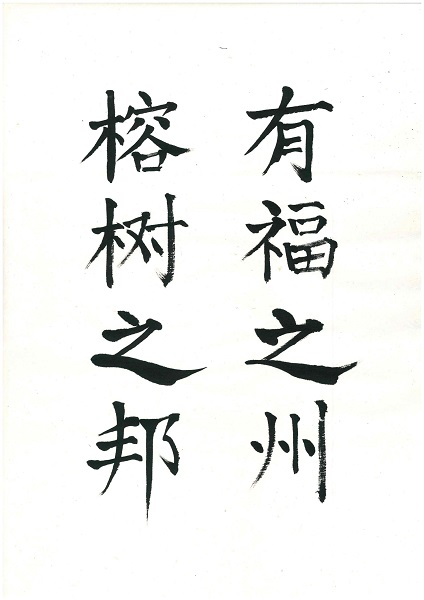 有福之州
榕树之邦